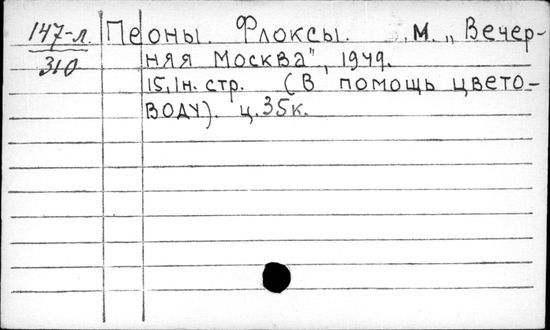 147-л. Пеоны. Флоксы. М. „Вечер-
310 няя Москва", 1949.
15,1н. стр. (В помощь цвето-
воду). ц. 35к.